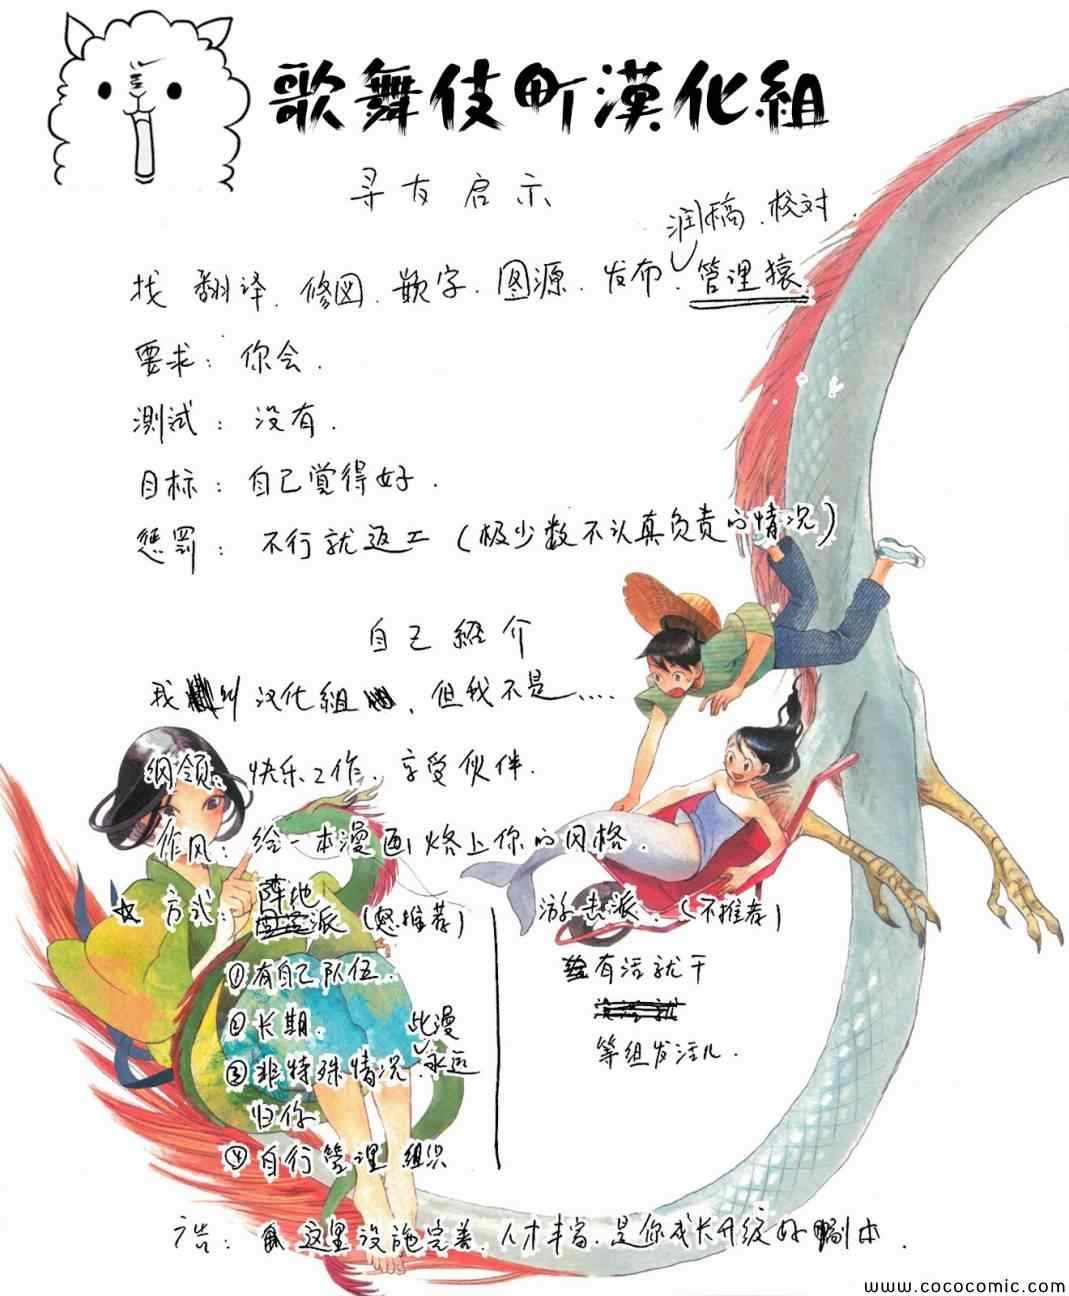 歌舞伎町漢化組
寻友启示
润稿.校对.
找 翻译.修图.嵌字.图源.发布.管理猿.
要求：你会.
测试：没有.
目标：自己觉得好.
惩罚：不行就返工（极少数不认真负责的情况）
自己紹介
我叫汉化組，但我不是....
纲领：快乐工作.享受伙伴.
作风：给一本漫画烙上你的风格.
☆方式：阵地派（恳推荐）
①有自己队伍.
②长期.
③非特殊情况.此漫永远
归你
④自行管理組织
游击派.（不推荐）
有活就干
等组发活儿.
广告：这里设施完善.人才丰富.是你成长升级好副本.
www.cococomic.com